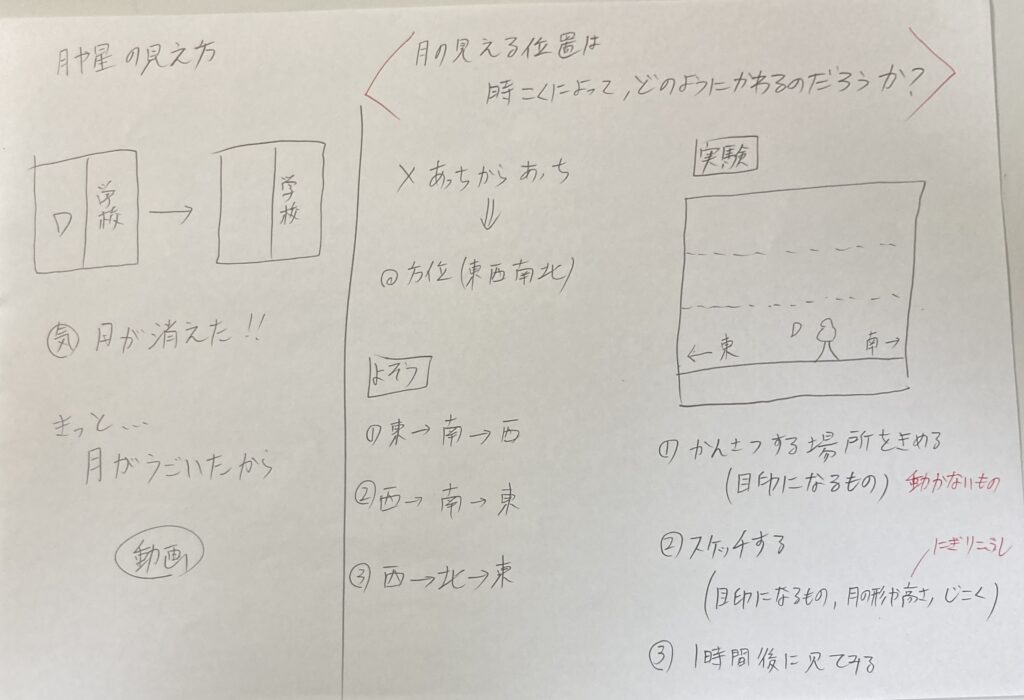 月や星の見え方
学校
学校
気 月が消えた!!
きっと...
月がうごいたから
動画
月の見える位置は
時こくによって,どのようにかわるのだろうか?
× あっちからあっち
◎方位(東西南北)
よそう
① 東→南→西
② 西→南→東
③ 西→北→東
実験
←東
南→
① かんさつする場所をきめる
(目印になるもの) 動かないもの
② スケッチする
にぎりこぶし
(目印になるもの,月の形や高さ,じこく)
③ 1時間後に見てみる